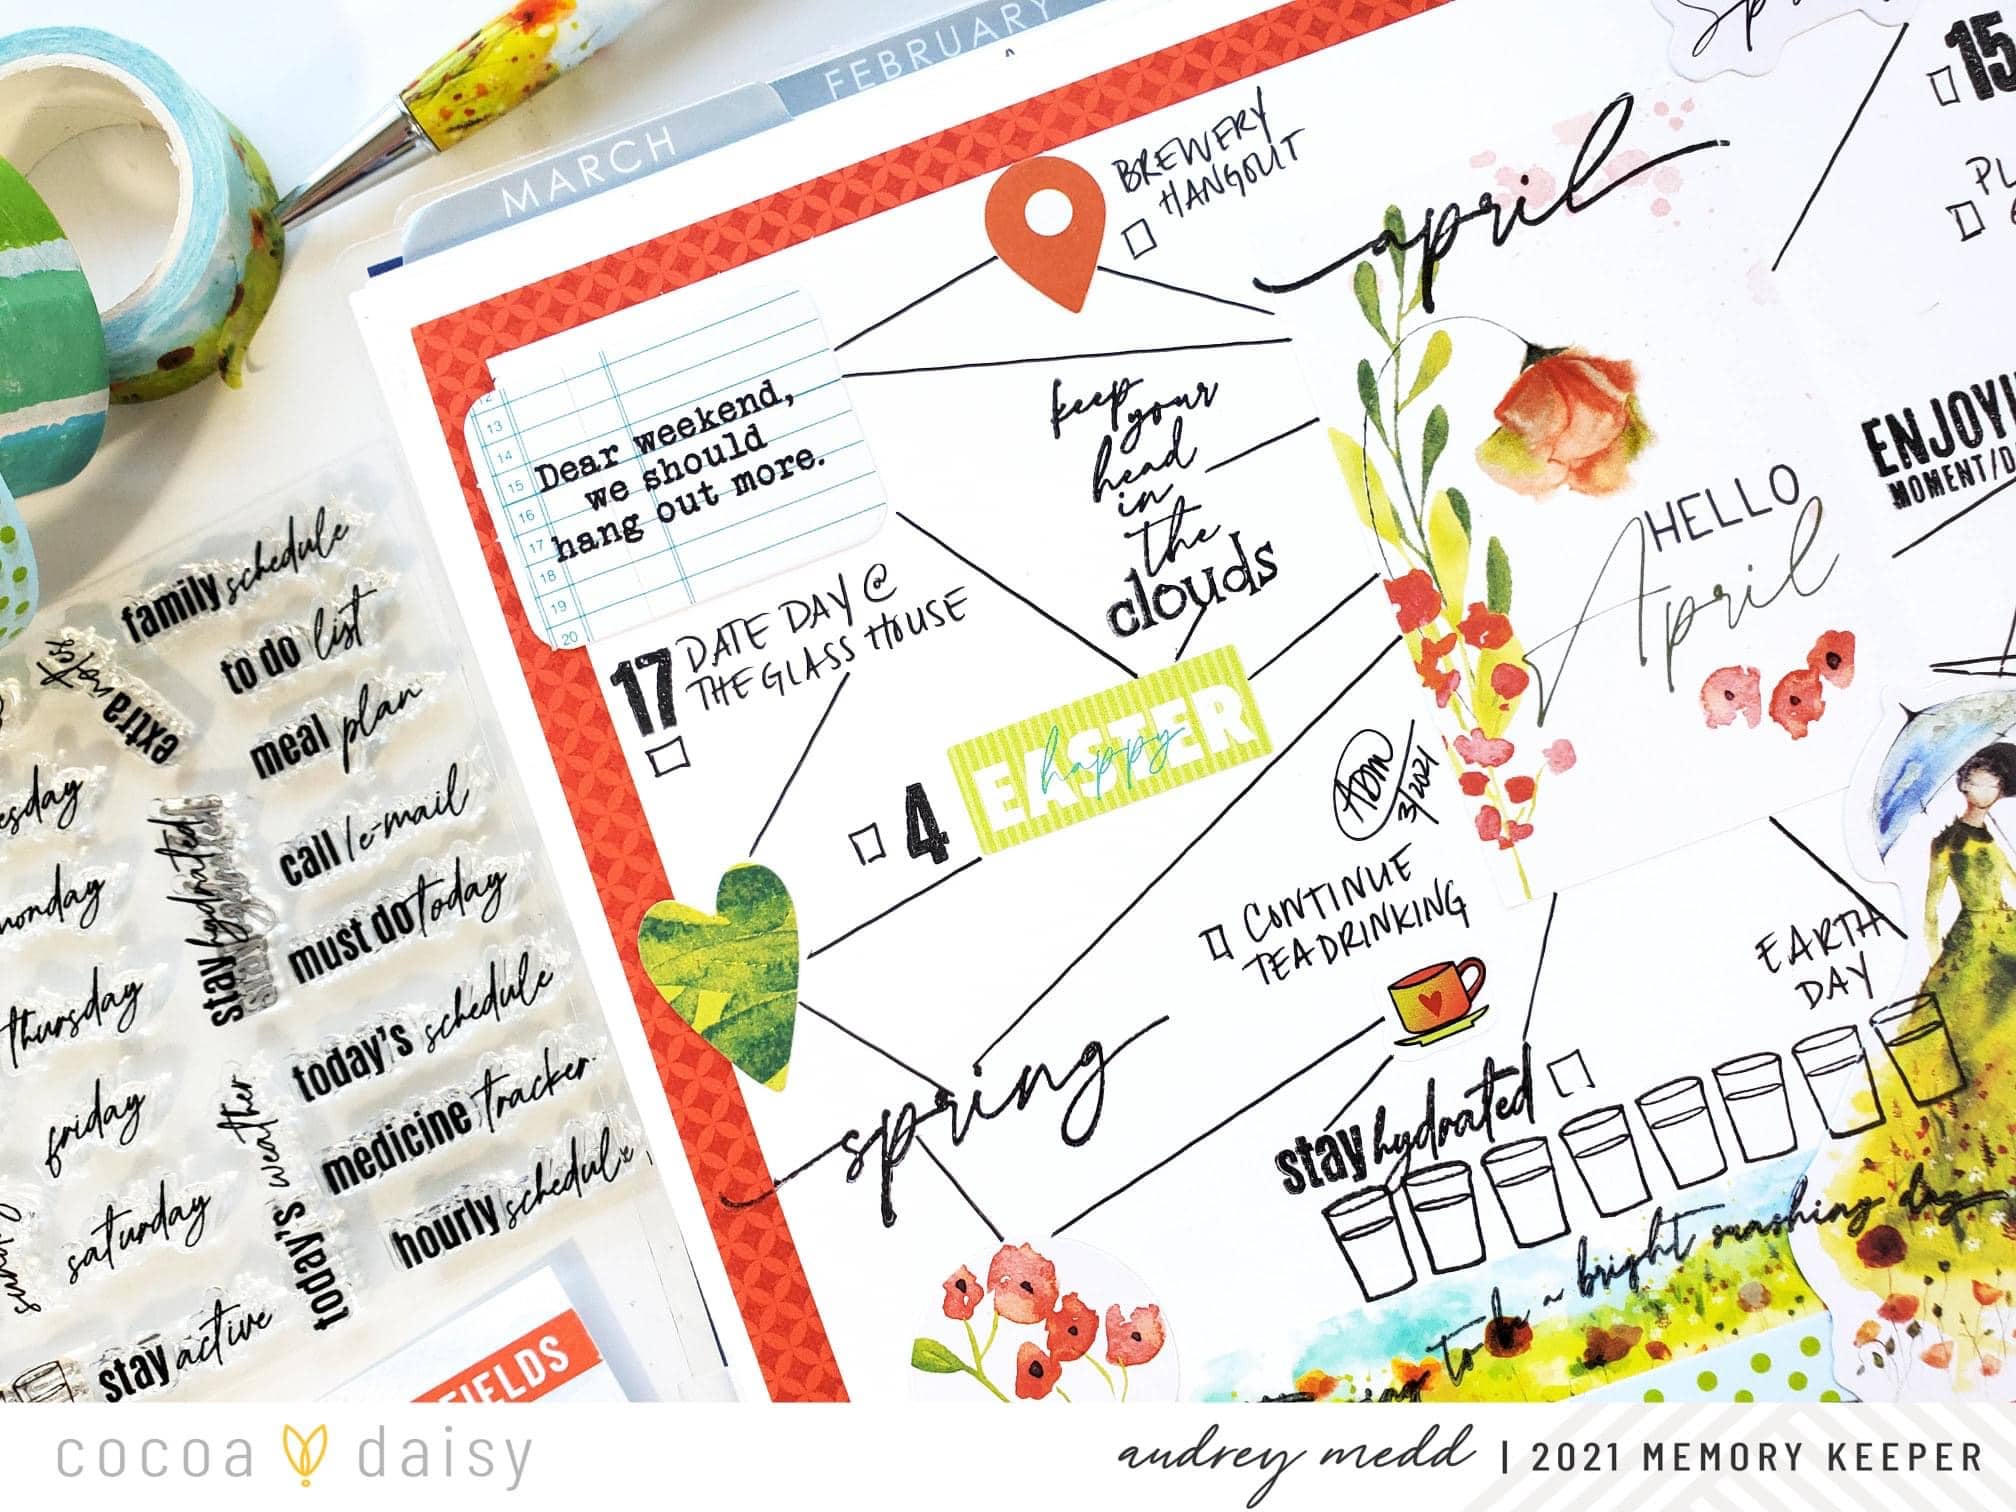 MARCH
FEBRUARY
BREWERY
HANGOUT
april
15
12
13
14
15
16
17
18
19
20
Dear weekend,
we should
hang out more.
keep
your
head
in
the
clouds
HELLO
April
MOMENT/
17
DATE DAY @
THE GLASS HOUSE
4
EASTER
happy
ADM
3/2021
CONTINUE
TEA DRINKING
EARTH
DAY
spring
stay hydrated
to be a bright sunshing day
family schedule
to do list
extra
meal plan
call/e-mail
monday
stay hydrated
must do today
thursday
today's schedule
friday
today's weather
medicine tracker
saturday
hourly schedule
stay active
FIELDS
cocoa daisy
audrey medd | 2021 MEMORY KEEPER